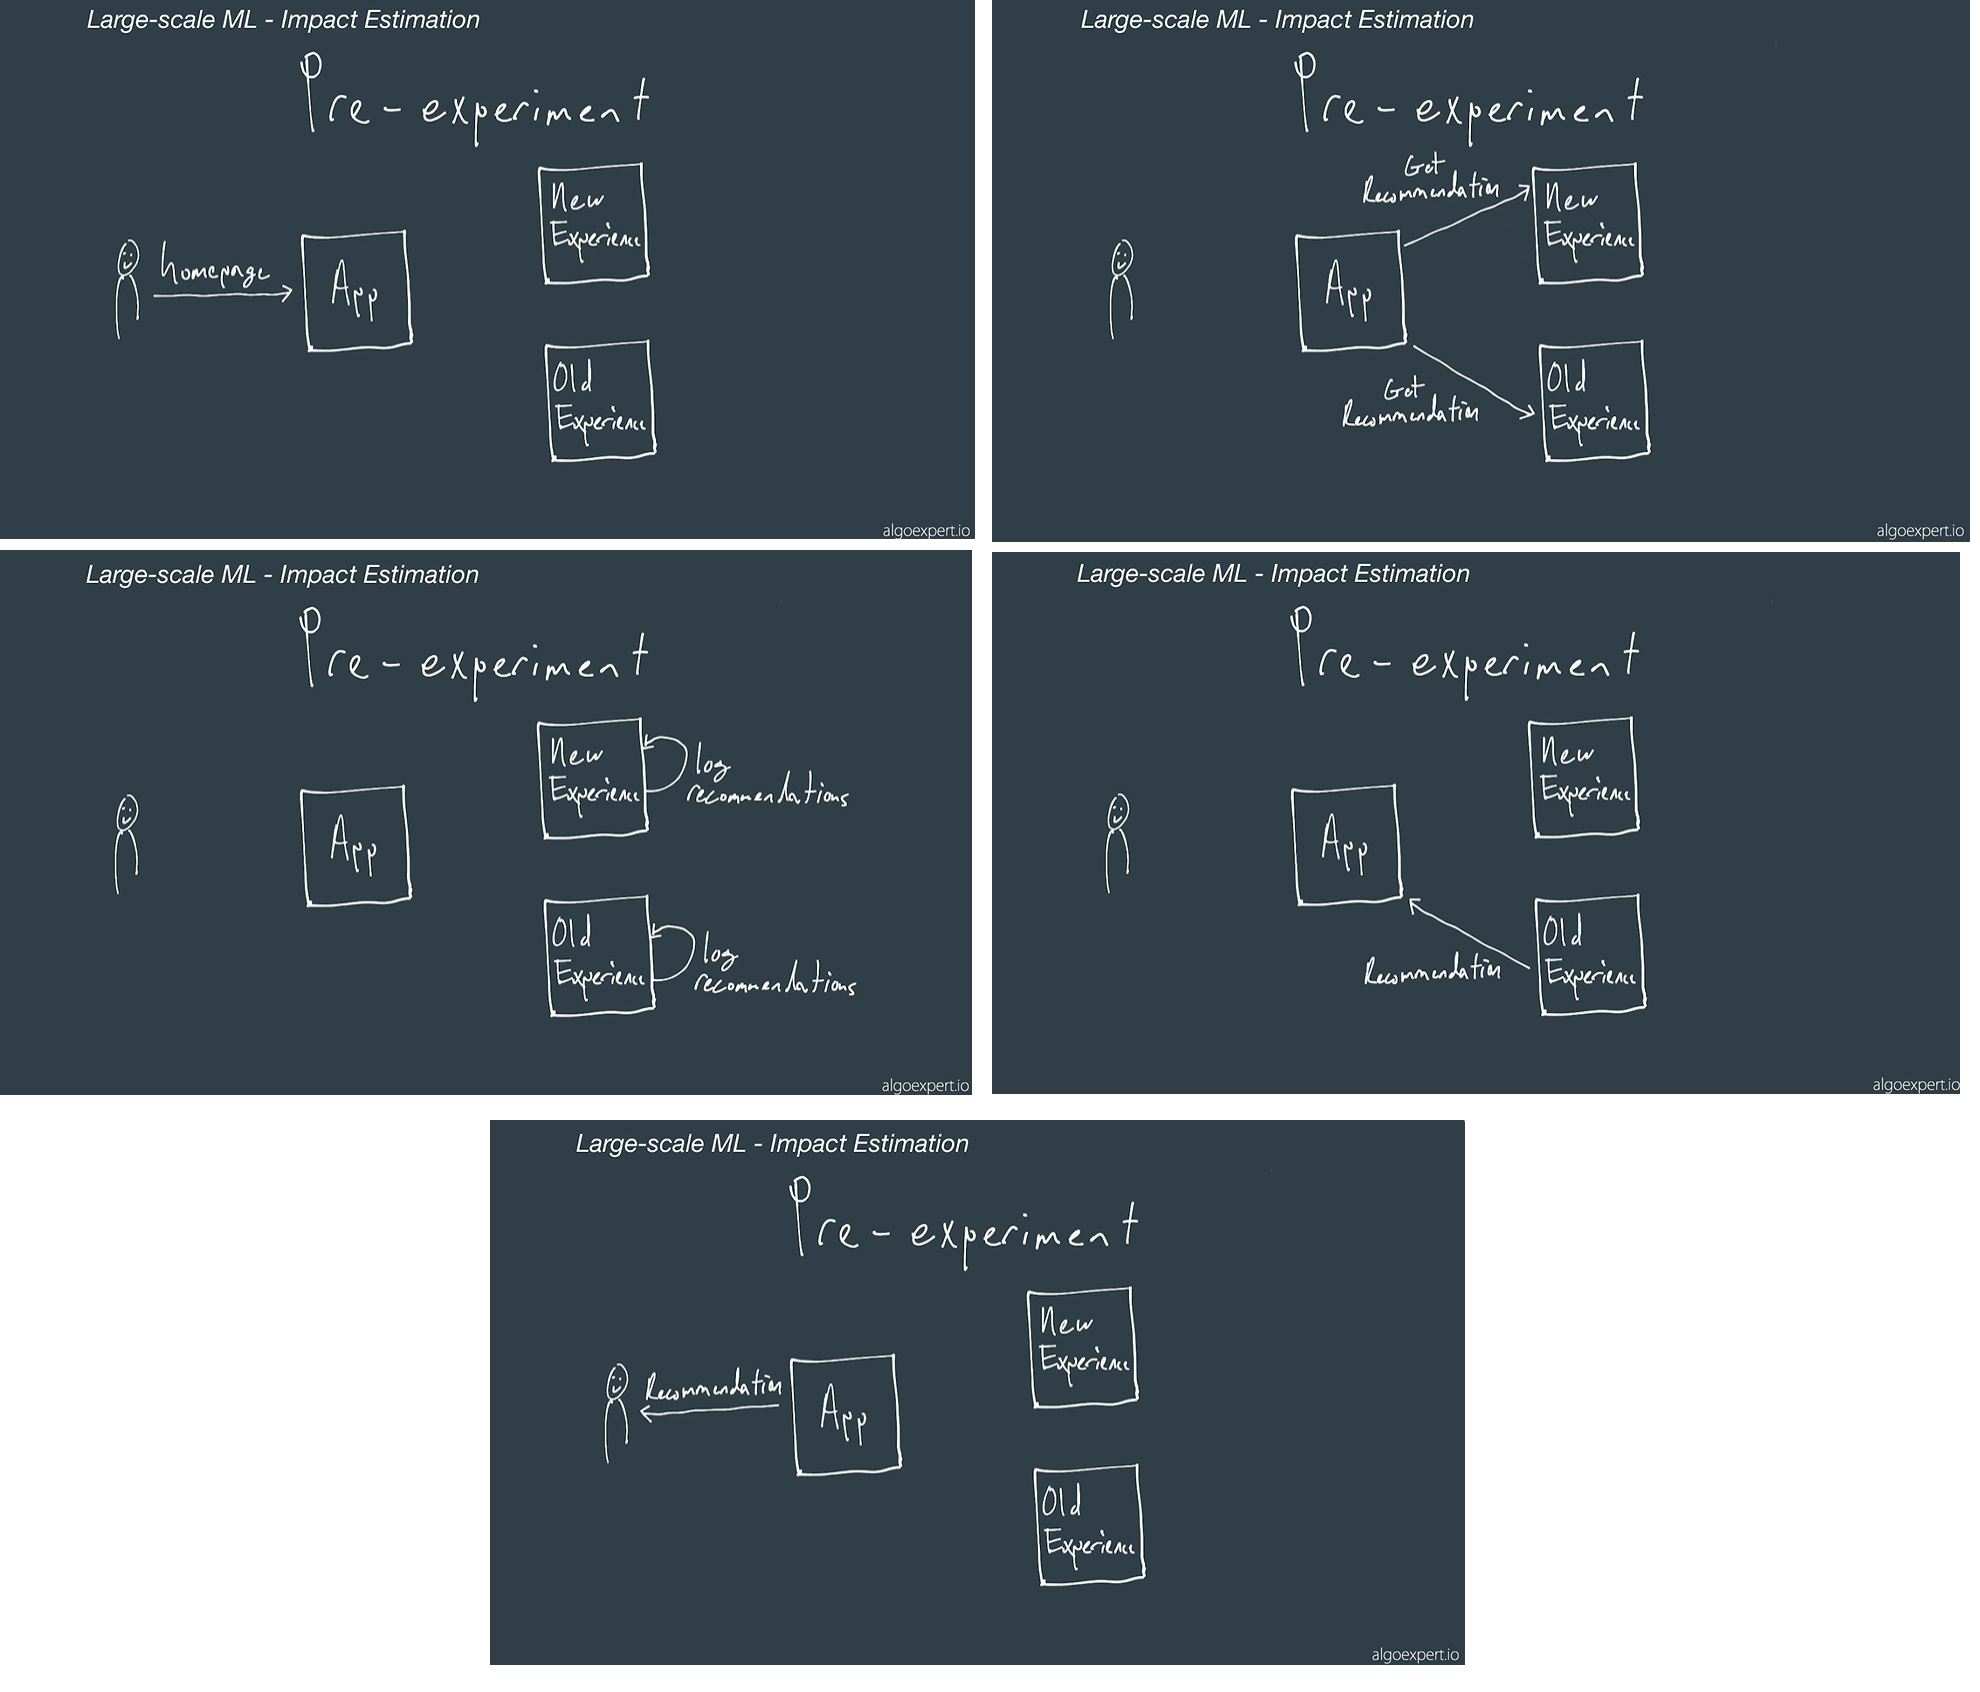 Large-scale ML - Impact Estimation
Pre-experiment
New
Experience
homepage
App
Old
Experience
algoexpert.io
Large-scale ML - Impact Estimation
Pre-experiment
Get
Recommendation
New
Experience
App
Get
Recommendation
Old
Experience
algoexpert.io
Large-scale ML - Impact Estimation
Pre-experiment
New
Experience
log
recommendations
App
Old
Experience
log
recommendations
algoexpert.io
Large-scale ML - Impact Estimation
Pre-experiment
New
Experience
App
Old
Experience
Recommendation
algoexpert.io
Large-scale ML - Impact Estimation
Pre-experiment
New
Experience
Recommendation
App
Old
Experience
algoexpert.io